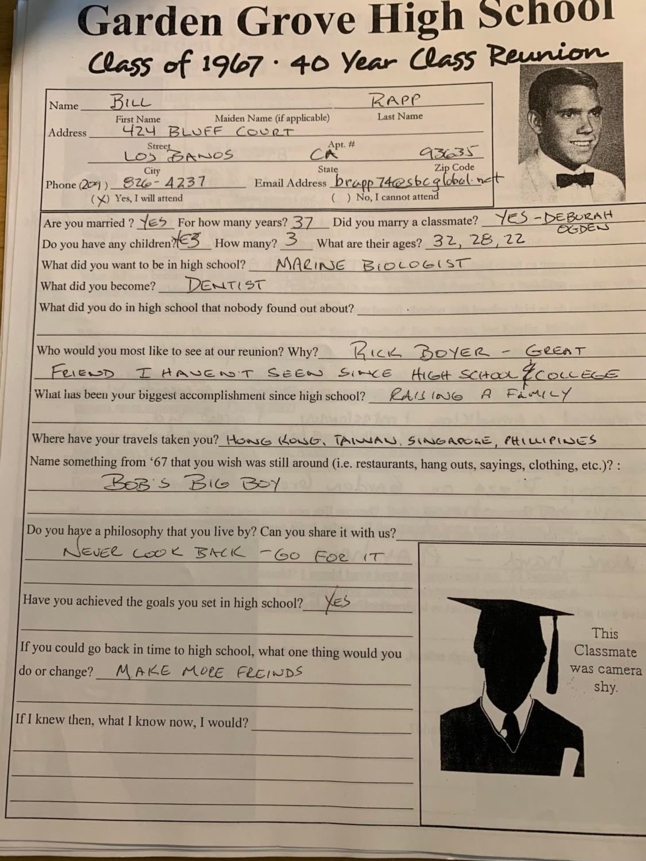 Garden Grove High School
Class of 1967 · 40 Year Class Reunion
Name BILL RAPP
First Name Maiden Name (if applicable) Last Name
Address 424 BLUFF COURT
Street Apt. #
LOS BANOS CA 93635
City State Zip Code
Phone (209) 826-4237 Email Address brapp74@sbcglobal.net
(X) Yes, I will attend ( ) No, I cannot attend
Are you married? YES For how many years? 37 Did you marry a classmate? YES - DEBURAH
OGDEN
Do you have any children? YES How many? 3 What are their ages? 32, 28, 22
What did you want to be in high school? MARINE BIOLOGIST
What did you become? DENTIST
What did you do in high school that nobody found out about?
Who would you most like to see at our reunion? Why? RICK BOYER - GREAT
FRIEND I HAVEN'T SEEN SINCE HIGH SCHOOL & COLLEGE
What has been your biggest accomplishment since high school? RAISING A FAMILY
Where have your travels taken you? HONG KONG, TAIWAN, SINGAPORE, PHILLIPINES
Name something from '67 that you wish was still around (i.e. restaurants, hang outs, sayings, clothing, etc.)? :
BOB'S BIG BOY
Do you have a philosophy that you live by? Can you share it with us?
NEVER LOOK BACK - GO FOR IT
Have you achieved the goals you set in high school? YES
If you could go back in time to high school, what one thing would you
do or change? MAKE MORE FREINDS
If I knew then, what I know now, I would?
This
Classmate
was camera
shy.